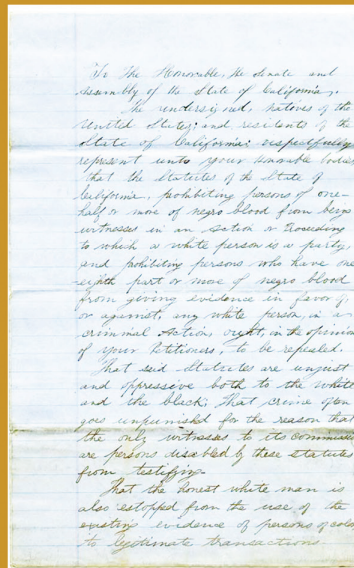 To The Honorable, the Senate and
Assembly of the State of California,
The undersigned, natives of the
United States; and residents of the
State of California; respectfully
represent unto your honorable bodies
that the Statutes of the State of
California, prohibiting persons of one-
half or more of negro blood from being
witnesses in an action or Proceeding
to which a white person is a party,
and prohibiting persons who have one
eighth part or more of negro blood
from giving evidence in favor of,
or against, any white person, in a
criminal Action, ought, in the opinion
of your Petitioners, to be repealed.
That said Statutes are unjust
and oppressive both to the white
and the black; That crime often
goes unpunished for the reason that
the only witnesses to its commission
are persons disabled by these statutes
from testifying.
That the honest white man is
also estopped from the use of the
existing evidence of persons of color
to legitimate transactions.